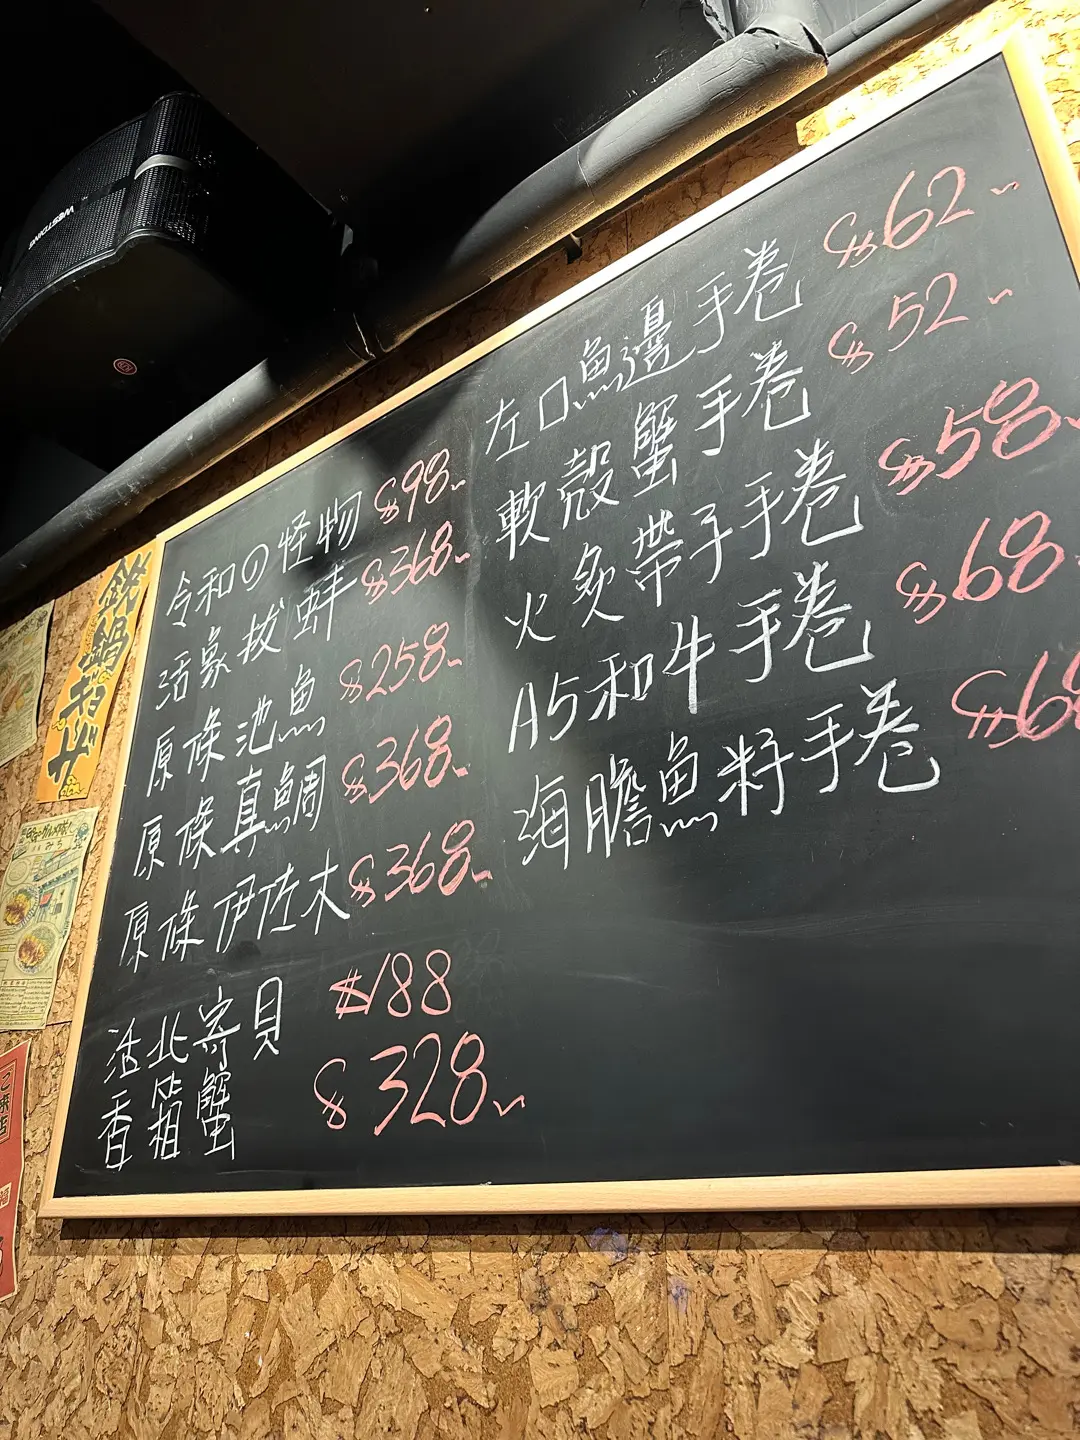 令和の怪物 $98
活象拔蚌 $368
原條池魚 $258
原條真鯛 $368
原條伊佐木 $368
活北寄貝 $188
香箱蟹 $328
左口魚邊手卷 $62
軟殼蟹手卷 $52
火炙帶子手卷 $58
A5和牛手卷 $68
海膽魚籽手卷
鉄鍋ギョーザ